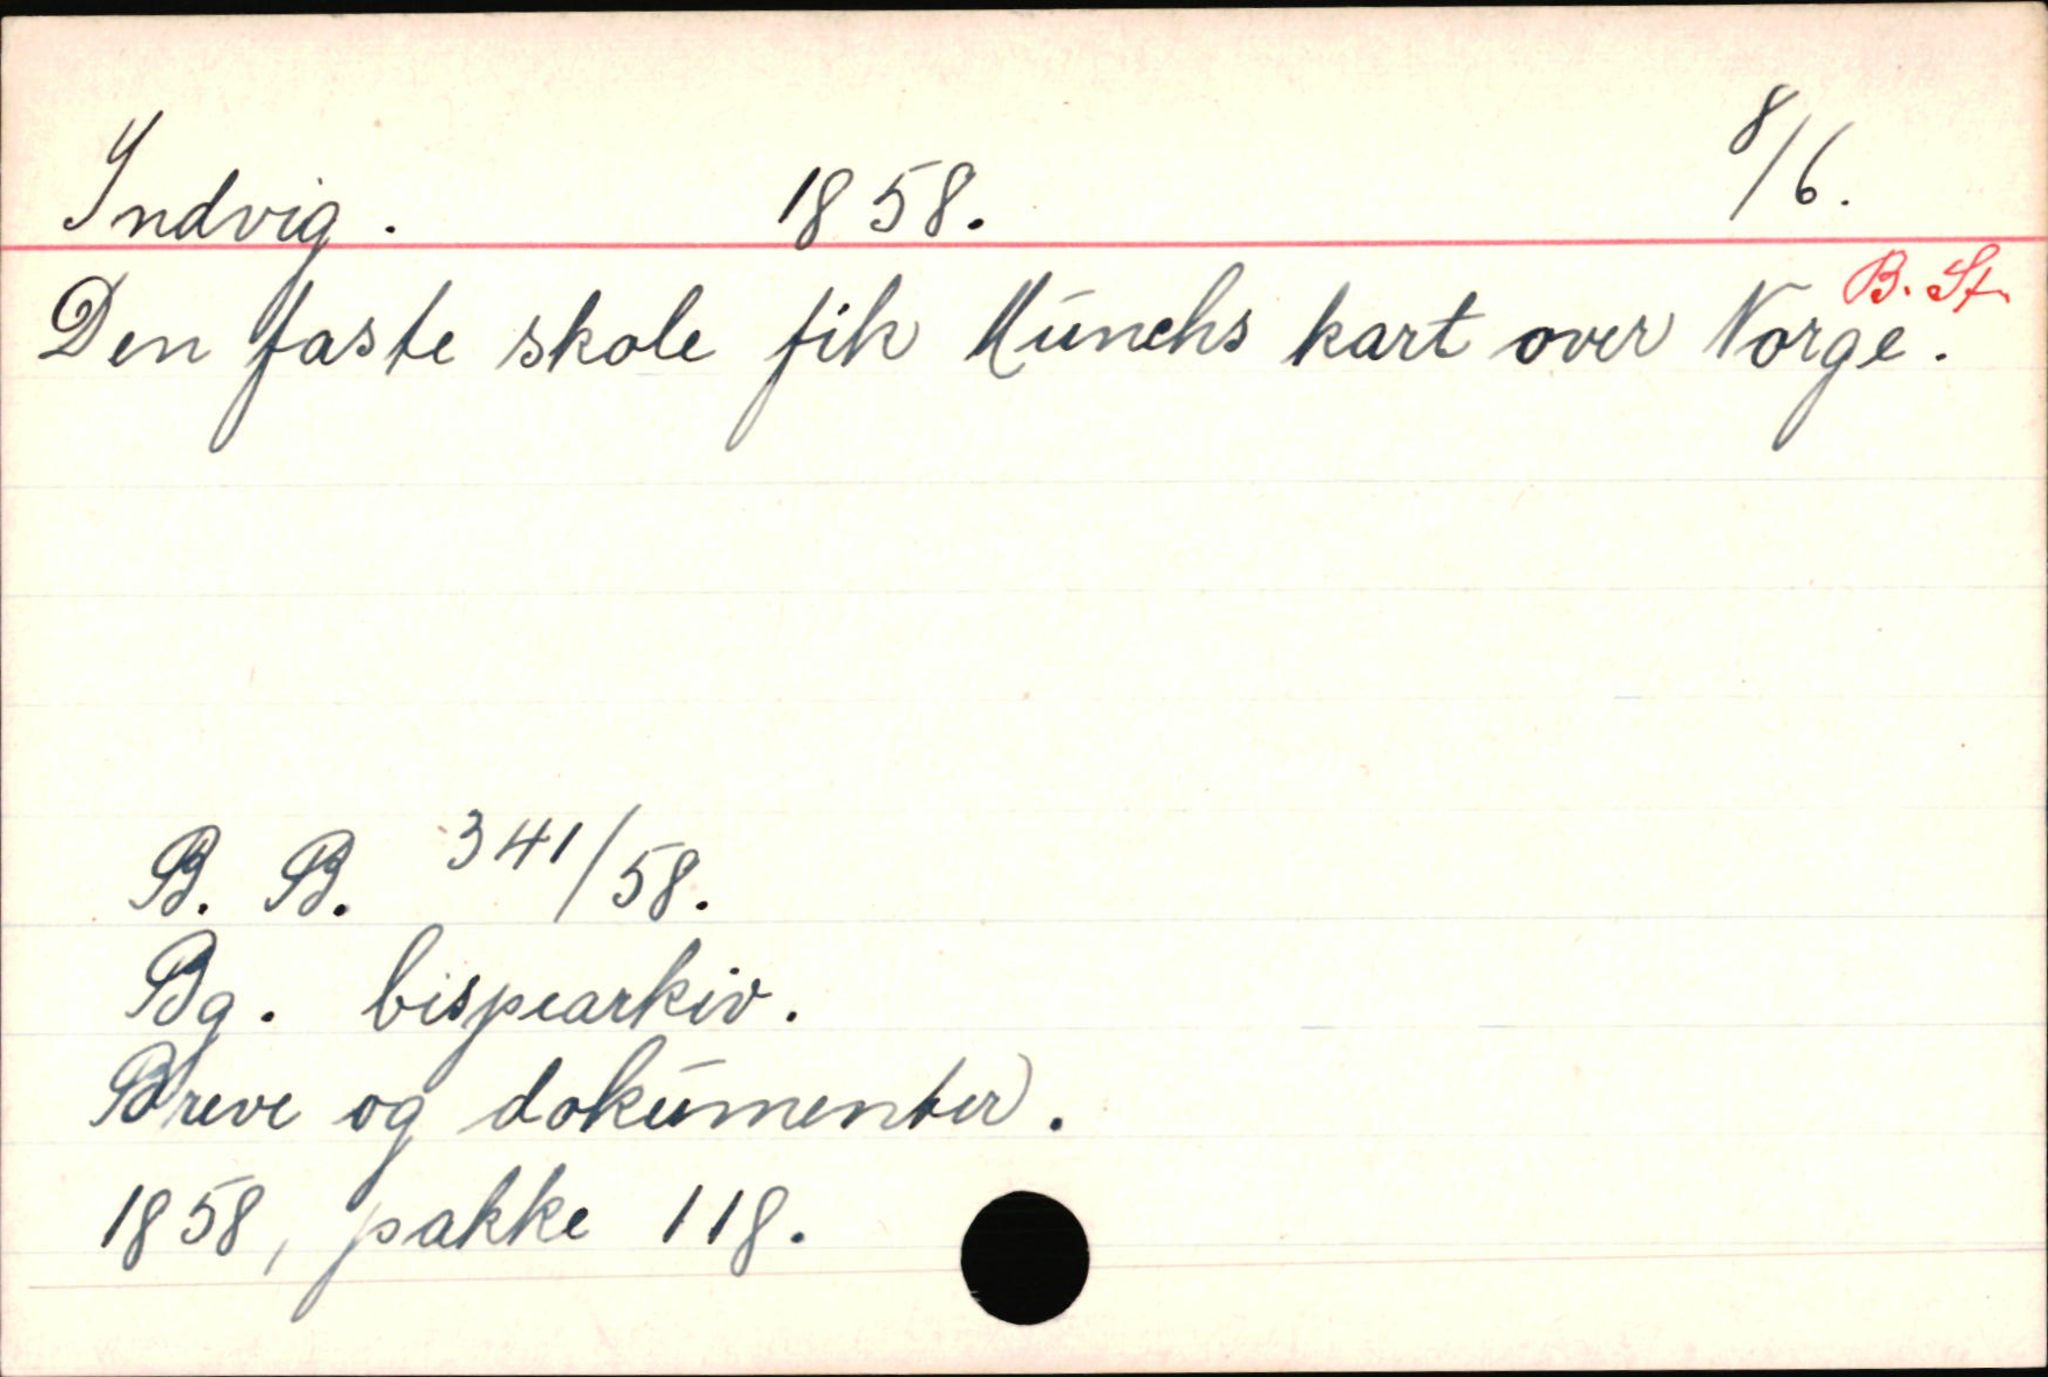 Indvig. 1858. 8/6.
B. St.
Den faste skole fik Munchs kart over Norge.
B. B. 341/58.
Bg. bispearkiv.
Breve og dokumenter.
1858, pakke 118.